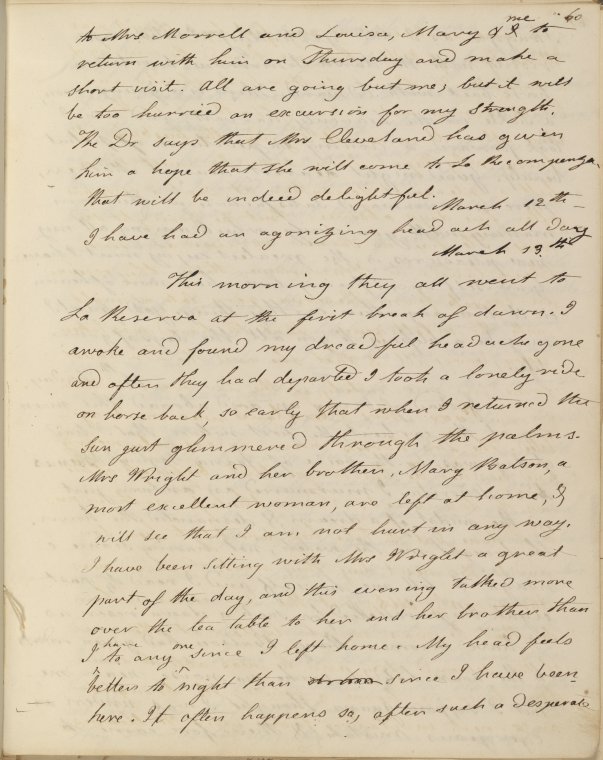 60
to Mrs Morrell and Louisa, Mary & I me to
return with him on Thursday and make a
short visit. All are going but me; but it will
be too hurried an excursion for my strength.
The Dr says that Mrs Cleveland has given
him a hope that she will come to La Recompensa
that will be indeed delightful.
March 12th
I have had an agonizing head ach all day
March 13.th
This morning they all went to
La Reserva at the first break of dawn. I
awoke and found my dreadful headache gone
and after they had departed I took a lonely ride
on horse back, so early that when I returned the
sun just glimmered through the palms.
Mrs Wright and her brother, Mary Batson, a
most excellent woman, are left at home, &
will see that I am not hurt in any way.
I have been sitting with Mrs Wright a great
part of the day, and this evening talked more
over the tea table to her and her brother than
I have to any one since I left home. My head feels
better to night than since I have been
here. It often happens so, after such a desperate